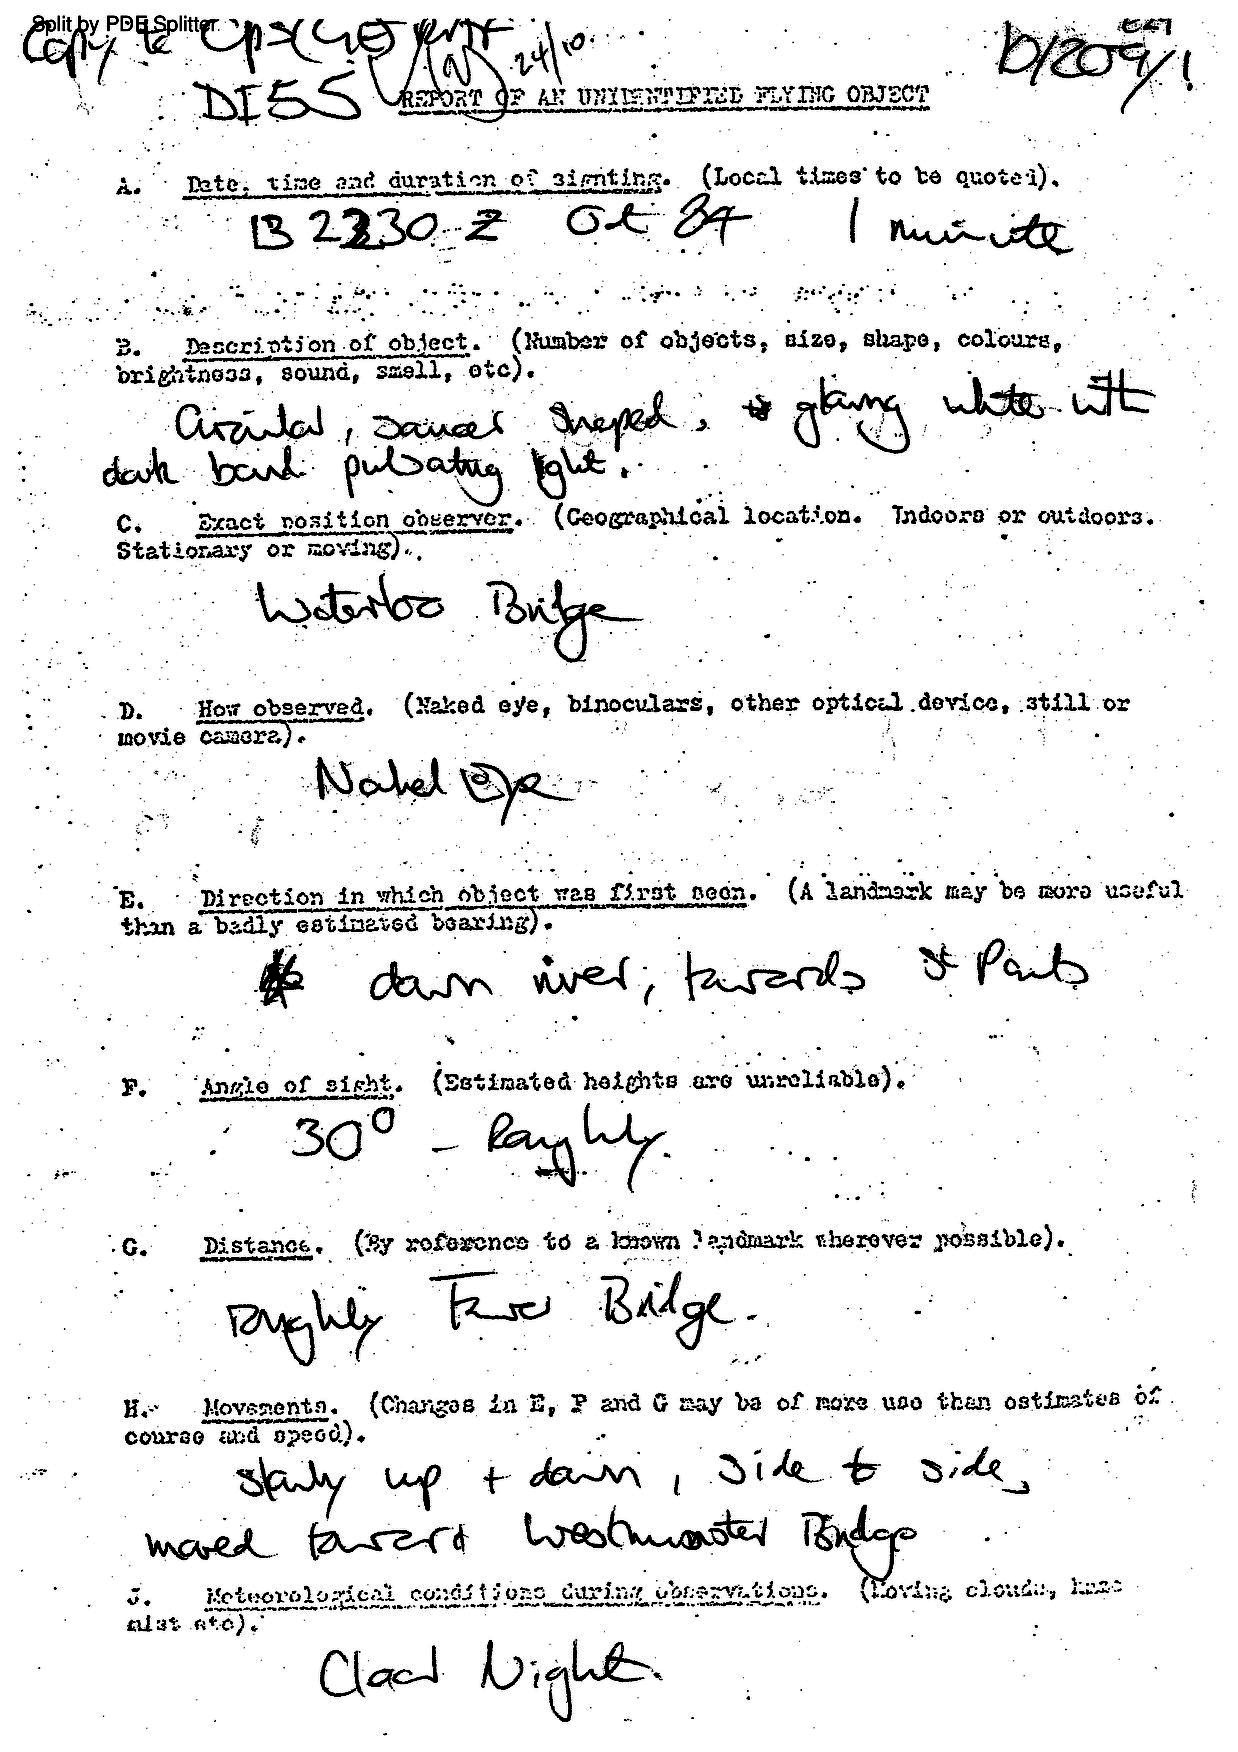 Split by PDF Splitter
Copy to
24/10.
D/209/1
DI55
REPORT OF AN UNIDENTIFIED FLYING OBJECT
A. Date, time and duration of sighting. (Local times to be quoted).
13 2230 Z Oct 84 1 minute
B. Description of object. (Number of objects, size, shape, colours,
brightness, sound, smell, etc).
Circular, saucer shaped, glowing white with
dark band pulsating light.
C. Exact position observer. (Geographical location. Indoors or outdoors.
Stationary or moving).
Waterloo Bridge
D. How observed. (Naked eye, binoculars, other optical device, still or
movie camera).
Naked Eye
E. Direction in which object was first seen. (A landmark may be more useful
than a badly estimated bearing).
down river, towards St Pauls
F. Angle of sight. (Estimated heights are unreliable).
30° - Roughly.
G. Distance. (By reference to a known landmark wherever possible).
Roughly Tower Bridge.
H. Movements. (Changes in E, F and G may be of more use than estimates of
course and speed).
slowly up + down, side to side,
moved toward Westminster Bridge
J. Meteorological conditions during observations. (Moving clouds, haze
mist etc).
Clear Night.